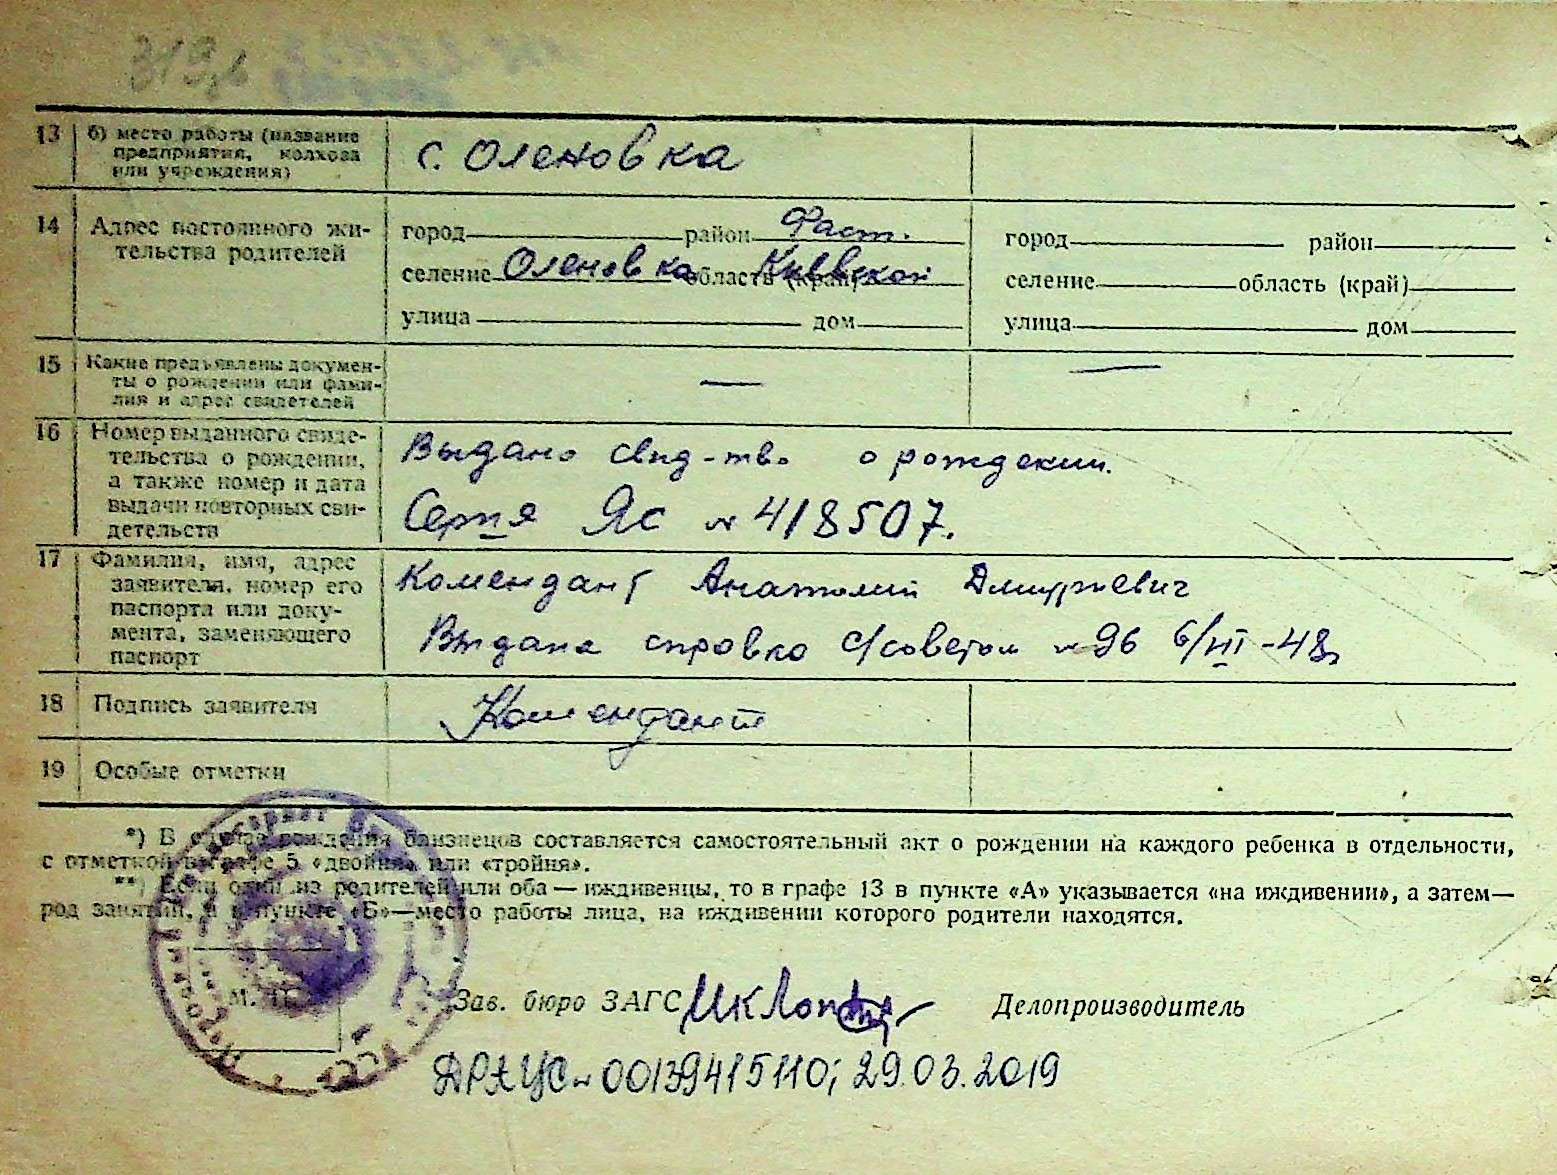 319
13 б) место работы (название
предприятия, колхоза
или учреждения)
с. Оленовка
14 Адрес постоянного жи-
тельства родителей
город район Фаст.
селение Оленовка область (край) Киевской
улица дом
город район
селение область (край)
улица дом
15 Какие предъявлены докумен-
ты о рождении или фами-
лия и адрес свидетелей
— —
16 Номер выданного свиде-
тельства о рождении,
а также номер и дата
выдачи повторных сви-
детельств
Выдано свид-тво о рождении.
Серия Яс № 418507.
17 Фамилия, имя, адрес
заявителя, номер его
паспорта или доку-
мента, заменяющего
паспорт
Комендант Анатолий Дмитриевич
Выдана справка с/советом № 96 6/III-48г
18 Подпись заявителя
Комендант
19 Особые отметки
*) В случае рождения близнецов составляется самостоятельный акт о рождении на каждого ребенка в отдельности,
с отметкой в графе 5 «двойня» или «тройня».
**) Если один из родителей или оба — иждивенцы, то в графе 13 в пункте «А» указывается «на иждивении», а затем—
род занятий, а в пункте «Б»—место работы лица, на иждивении которого родители находятся.
М. П.
Зав. бюро ЗАГС Делопроизводитель
ДРАЦС № 00139415110; 29.03.2019